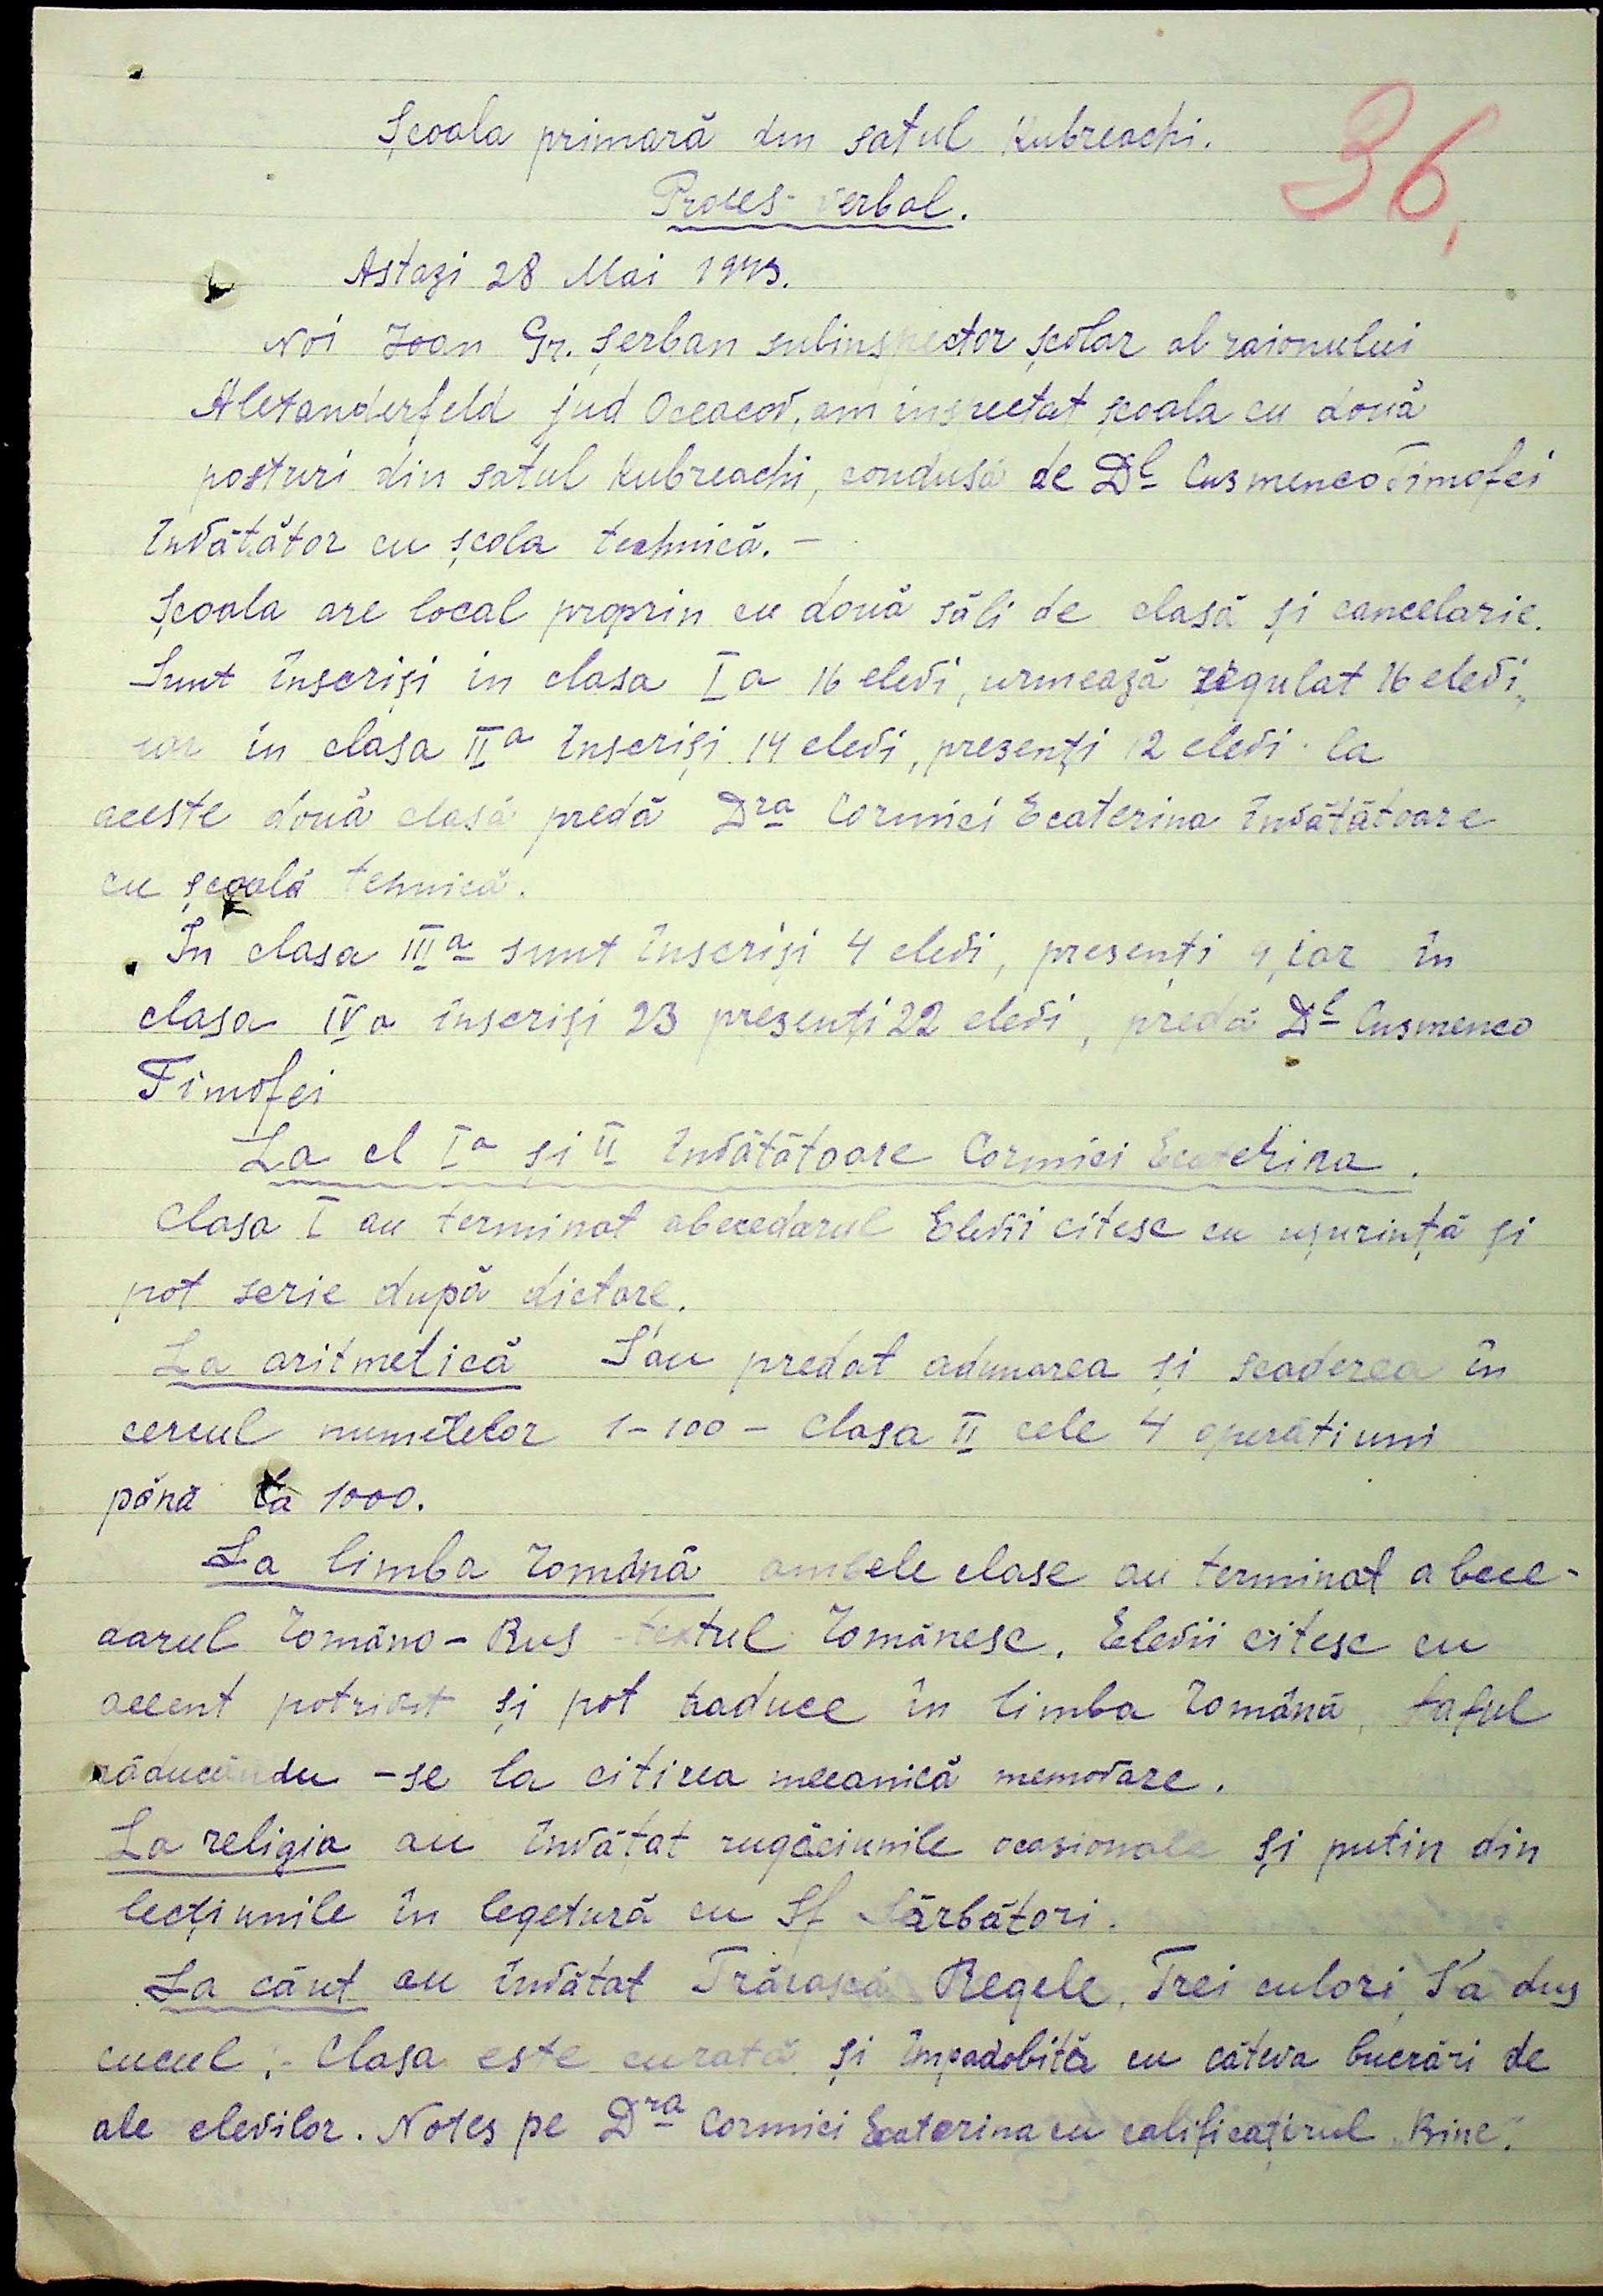 Școala primară din satul Kubreachi.
36,
Proces-verbal.
Astazi 28 Mai 1943.
Noi Ioan Gr. Șerban subinspector școlar al raionului
Alexanderfeld jud Oceacov, am inspectat școala cu două
posturi din satul Kubreachi, condusă de Dl Cusmenco Timofei
învătător cu școla technică. –
Școala are local propriu cu două săli de clasă și cancelarie.
Sunt înscriși in clasa I a 16 elevi, urmează regulat 16 elevi,
iar in clasa II a înscriși 14 elevi, prezenți 12 elevi la
aceste două clasă predă Dra Cormici Ecaterina învătătoare
cu școală tehnică.
În clasa III a sunt înscriși 4 elevi, prezenți 4, iar în
clasa IV a inscriși 23 prezenți 22 elevi, predă Dl Cusmenco
Timofei
La cl I a și II învătătoare Cormici Ecaterina.
Clasa I au terminat abecedarul Elevii citesc cu ușurință și
pot scrie după dictare.
La aritmetică S'au predat adunarea și scaderea în
cercul numerelor 1-100 – Clasa II cele 4 operatiuni
până la 1000.
La limba română ambele clase au terminat abece-
darul Româno-Rus textul Românesc. Elevii citesc cu
accent potrivit și pot traduce în limba română,
răducându-se la citirea mecanică
La religia au învățat rugăciunile ocasionale și putin din
lecțiunile în legetură cu Sf Sărbători.
La cânt au învătat Trăiască Regele, Trei culori, S'a dus
cucul; - Clasa este curată și împodobită cu câteva lucrări de
ale elevilor. Notes pe Dra Cormici Ecaterina cu calificativul „Bine".